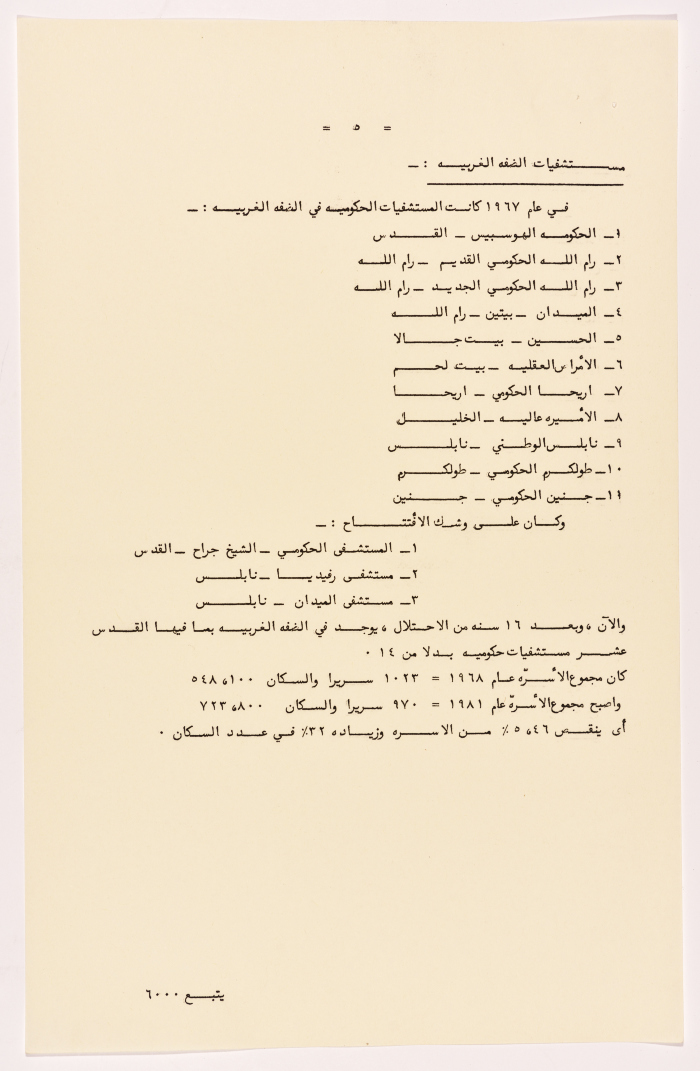 = ٥ =
مستشفيات الضفه الغربيه : ـ
في عام ١٩٦٧ كانت المستشفيات الحكوميه في الضفه الغربيه : ـ
١ـ الحكومه الهوسبيس ـ القدس
٢ـ رام الله الحكومي القديم ـ رام الله
٣ـ رام الله الحكومي الجديد ـ رام الله
٤ـ الميدان ـ بيتين ـ رام الله
٥ـ الحسين ـ بيت جالا
٦ـ الأمراض العقليه ـ بيت لحم
٧ـ اريحا الحكومي ـ اريحا
٨ـ الأميره عاليه ـ الخليل
٩ـ نابلس الوطني ـ نابلس
١٠ـ طولكرم الحكومي ـ طولكرم
١١ـ جنين الحكومي ـ جنين
وكان على وشك الافتتاح : ـ
١ـ المستشفى الحكومي ـ الشيخ جراح ـ القدس
٢ـ مستشفى رفيديا ـ نابلس
٣ـ مستشفى الميدان ـ نابلس
والآن ، وبعد ١٦ سنه من الاحتلال ، يوجد في الضفه الغربيه بما فيها القدس
عشر مستشفيات حكوميه بدلا من ١٤ ٠
كان مجموع الأسرّه عام ١٩٦٨ = ١٠٢٣ سريرا والسكان ٥٤٨،١٠٠
واصبح مجموع الأسرّه عام ١٩٨١ = ٩٧٠ سريرا والسكان ٧٢٣،٨٠٠
أى ينقص ٥،٤٦٪ من الاسره وزياده ٣٢٪ في عدد السكان ٠
يتبع ٦٠٠٠